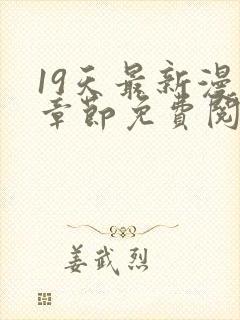 19天最新漫
章節免費閱
姜武烈